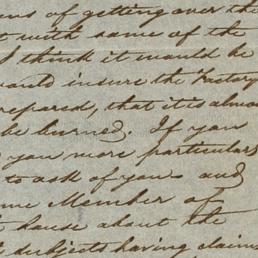 ns of getting over the
t with some of the
I think it would be
would insure the Factory
repared, that it is almo
be burned. If you
you more particulars
to ask of yours and
me Member of
house about the
subjects having claim